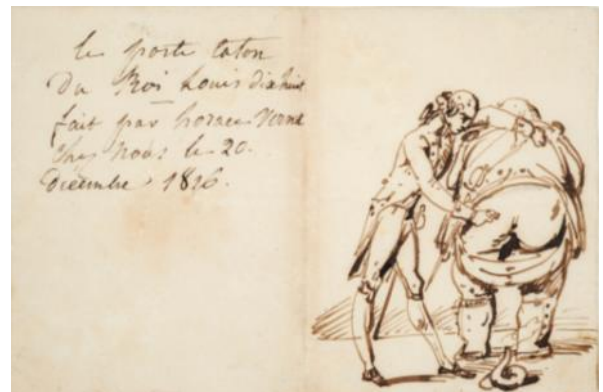 le porte coton
du Roi Louis dix huit
fait par horace Verne
chez nous le 20.
decembre 1816.